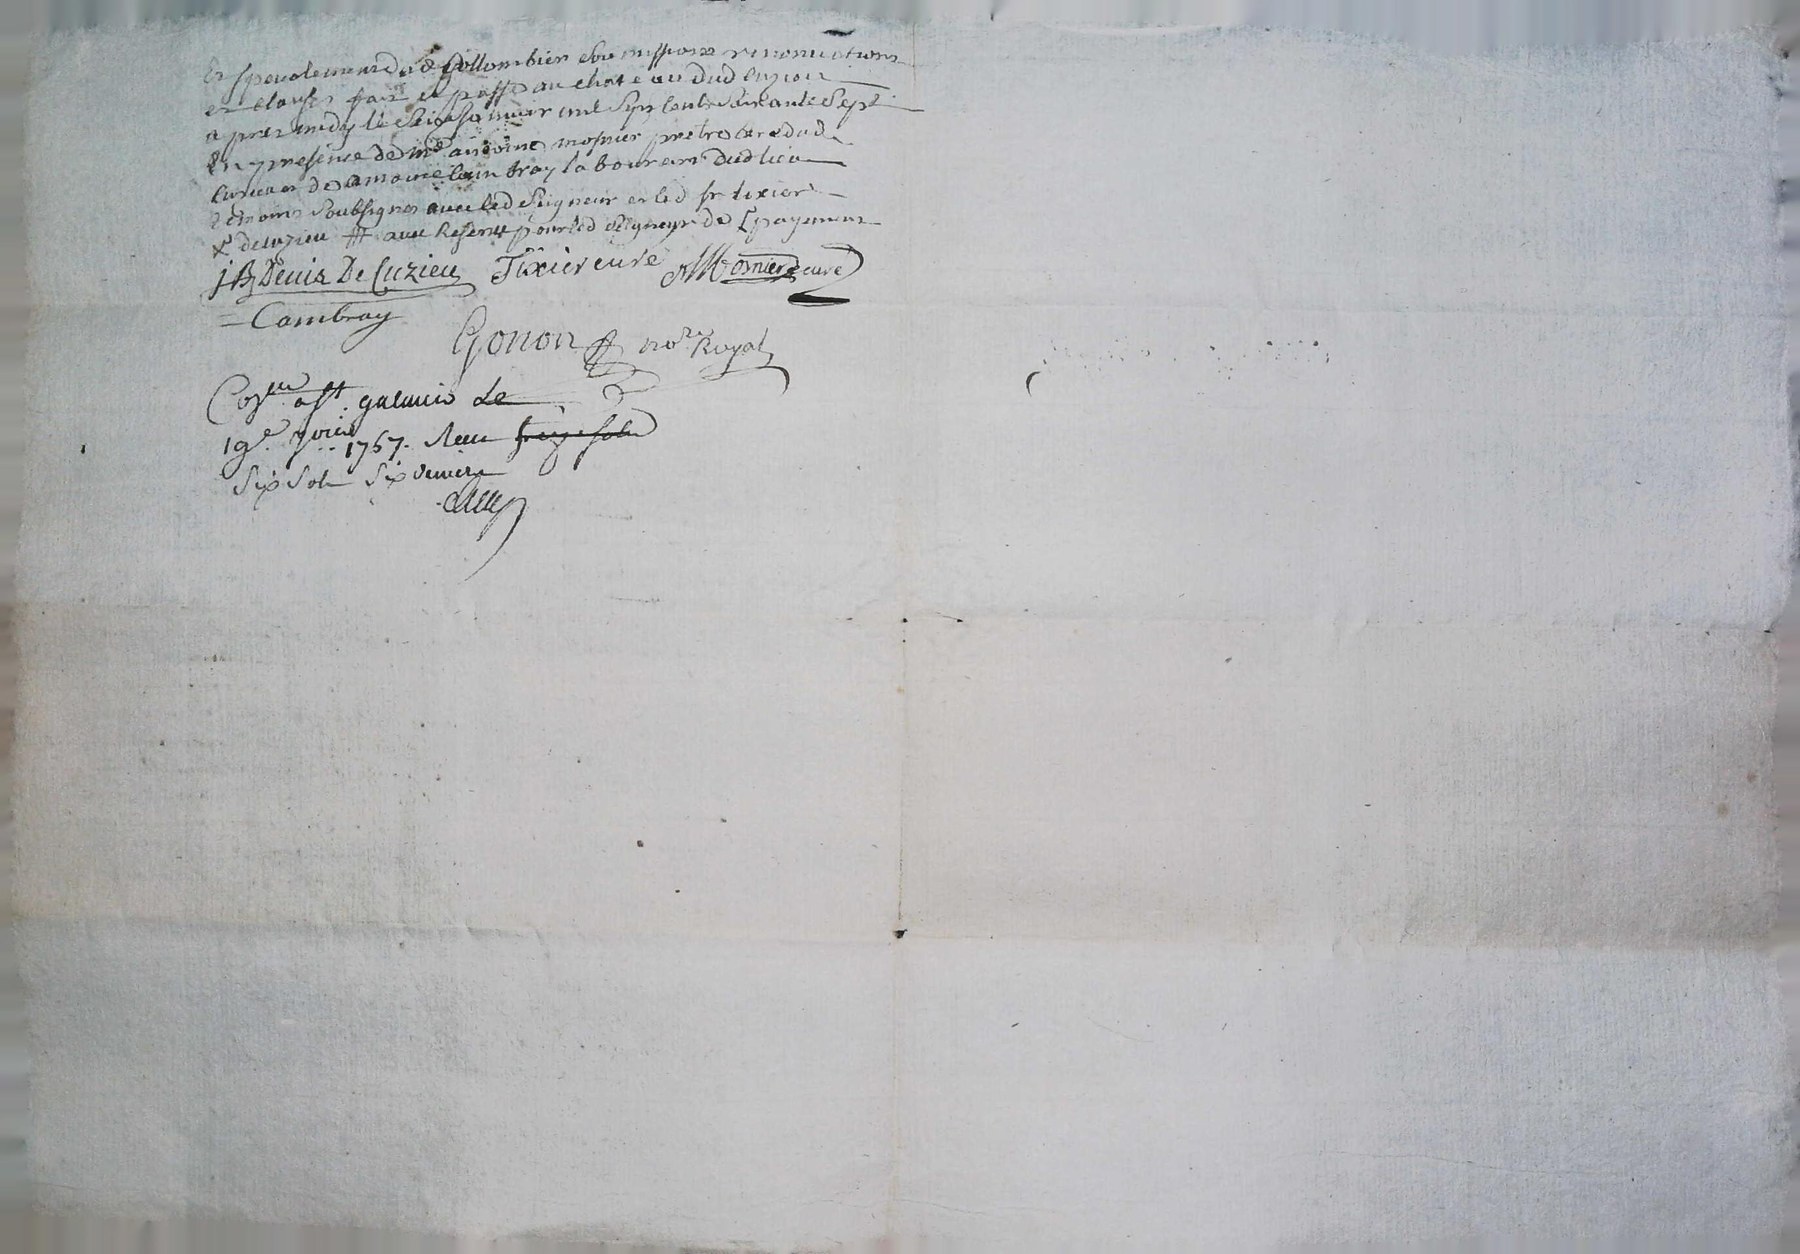 Et specialement dud Collombier soumissions renonciations
et clauses fait et passé au chateau dud Cuzieu
apres midy le seize janvier mil sept cent soixante sept
En presence de me antoine mosnier pretre curé dud
Cuzieu et de antoine Cambray laboureur dud lieu
temoins soubsignes avec led Seigneur et led sr tixier
de Cuzieu avec Reserve pour led seigneur de payement
j B Denis De Cuzieu Tixier curé A Mosnier curé
Cambray
Gonon nore Royal
a st galmier Le
19e 1767. Reçu seize sols
Six Sols Six deniers